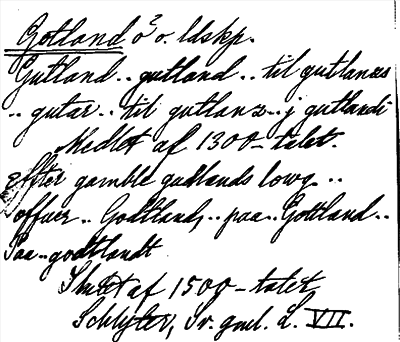 Gotland ö o. ldskp.
Gutland .. gutland .. til gutlanz
.. gutar .. til gutlanz .. j gutlandi
Medlet af 1300-talet.
effter gamble gudlands lowg ..
offuer .. Godtlandz .. paa .. Gottland ..
Paa .. godtlandt
Slutet af 1500-talet
Schlyter, Sv. gml. L. VII.